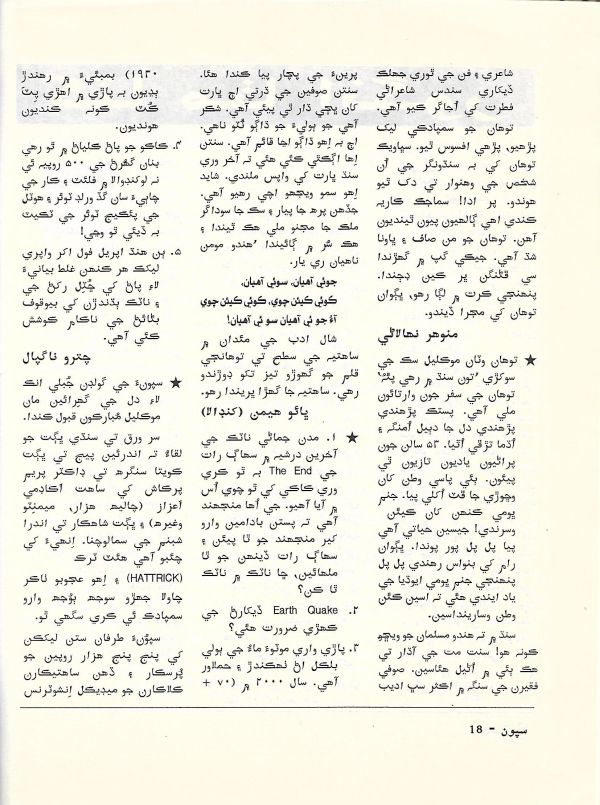 شاعري ۽ فن جي ٿوري جھلڪ
ڏيکاري سندس شاعراڻي
فطرت کي اُجاگر ڪيو آهي.
توهان جو سمپادڪي ليک
پڙهيو، پڙهي افسوس ٿيو. سڀاويڪ
توهان کي بہ سنڌونگر جي اُن
شخص جي وهنوار تي دک ٿيو
هوندو. پر ادا! سماجڪ ڪاريہ
ڪندي اهي ڳالهيون پيون ٿينديون
آهن. توهان جو من صاف ۽ ڀاونا
شڌ آهي. جيڪي گپ ۾ گھڙندا
سي ڦڻنگن پر ڪين ڊڄندا.
پنهنجي ڪرت ۾ لڳا رهو، ڀڳوان
توهان کي مڃرا ڏيندو.
منوهر نهالاڻي
★ توهان وٽان موڪليل سڪ جي
سوکڙي 'تون سنڌ ۾ رهي پئہ'
توهان جي سفر جون وارتائون
ملي آهي. پستڪ پڙهندي
پڙهندي دل جا دٻيل اُمنگ ۽
اُڌما تڙڦي اُٿيا. ۵۳ سالن جون
پراڻيون ياديون تازيون ٿي
پيئون. ٻئي پاسي وطن کان
وڇوڙي جا ڦٽ اُکلي پيا. جنم
ڀومي ڪنهن کان ڪيئن
وسرندي! جيسين حياتي آهي
پيا پل پل پور پوندا. ڀڳوان
رام کي بنواس رهندي پل پل
پنهنجي جنم ڀومي ايوڌيا جي
ياد ايندي هئي تہ اسين ڪئن
وطن وسارينداسين.
سنڌ ۾ تہ هندو مسلمان جو ويڇو
ڪونہ هو! سنت مت جي آڌار تي
هڪ ٻئي ۾ اُڻيل هئاسين. صوفي
فقيرن جي سنگہ ۾ اڪثر سڀ اديب
پرينءَ جي پچار پيا ڪندا هئا.
سنتن صوفين جي ڌرتي اڄ ڀارت
کان ڀڄي ڌار ٿي پيئي آهي. شڪر
آهي جو ٻوليءَ جو ڌاڳو ٽُٽو ناهي.
اڄ بہ اِهو ڌاڳو اڃا قائم آهي. سنتن
اِها اڳڪٿي ڪئي هئي تہ آخر وري
سنڌ ڀارت کي واپس ملندي. شايد
اِهو سمو ويجھو اچي رهيو آهي.
جڏهن پرھ جا پيار ۽ سڪ جا سوداگر
ملڪ جا مڃنو ملي هڪ ٿيندا ۽
هڪ سُر ۾ ڳائيندا 'هندو مومن
ناهيان ري يار.
جوئي آهيان، سوئي آهيان،
ڪوئي ڪيئن چوي، ڪوئي ڪيئن چوي
آءٌ جو ئي آهيان سو ئي آهيان!
شال ادب جي مئدان ۾
ساهتيہ جي سطح تي توهانجي
قلم جو گھوڙو تيز تکو ڊوڙندو
رهي. ساهتيہ جا گھڙا ڀريندا رهو.
ڀائو هيمن (کنڊالا)
★ ۱. مدن جماڻي ناٽڪ جي
آخرين درشيہ ۾ سهاڳ رات
جي The End بہ ٿو ڪري
وري ڪاڪي کي ٿو چوي اُس
۾ آيا آهيو. جي اُها منجھند
آهي تہ پستن بادامين وارو
کير منجھند جو ٿا پيئن ۽
سهاڳ رات ڏينهن جو ٿا
ملهائين، ڇا ناٽڪ ۾ ناٽڪ
ٿا ڪن؟
۲. Earth Quake ڏيکارڻ جي
ڪهڙي ضرورت هئي؟
۳. پاڙي واري موٽوءَ ماءُ جي ٻولي
بلڪل اڻ ٺهڪندڙ ۽ حملاور
آهي. سال ۲۰۰۰ ۾ (۷۰ +
۱۹۳۰) بمبئيءَ ۾ رهندڙ
ٻڍيون بہ پاڙي ۾ اهڙي پِٽَ
ڪُٽ ڪونہ ڪنديون
هونديون.
۴. ڪاڪو جو پاڻ ڪلياڻ ۾ ٿو رهي
بنان گھُرڻ جي ۵۰۰ روپيہ ٿي
نہ لوکنڊوالا ۾ فلئٽ ۽ ڪار جي
چاٻيءَ سان گڏ ورلڊ ٽوئر ۽ هوٽل
جي پئڪيج ٽوئر جي ٽڪيٽ
بہ ڏيئي ٿو وڃي!
۵. ٻن هنڌ اپريل فول اکر واپري
ليکڪ هر ڪنهن غلط بيانيءَ
لاءِ پاڻ کي ڇُٽل رکڻ جي
۽ ناٽڪ ٻڌندڙن کي بيوقوف
بڻائڻ جي ناڪام ڪوشش
ڪئي آهي.
چترو ناگپال
★ سپونءَ جي گولڊن جُبلي انڪ
لاءِ دل جي گهراين مان
موڪليل مُبارڪون قبول ڪندا.
سر ورق تي سنڌي ڀڳت جو
لقاءُ تہ اندرئين پيج تي ڀڳت
ڪويتا سنگرھ تي ڊاڪٽر پريم
پرڪاش کي ساهت اڪاڊمي
اعزاز (چاليھ هزار، ميمنٽو
وغيره) ۽ ڀڳت شاهڪار تي اندرا
شبنم جي سمالوچنا. اِنهيءَ کي
چئبو آهي هئٽ ٽرڪ
(HATTRICK) ۽ اِهو عجوبو ٺاڪر
چاولا جھڙو سوجھ ٻوُجھ وارو
سمپادڪ ئي ڪري سگھي ٿو.
سپوُنءَ طرفان ستن ليکڪن
کي پنج پنج هزار روپين جو
پُرسڪار ۽ ڏهن ساهتيڪارن
ڪلاڪارن جو ميڊيڪل اِنشوئرنس
سپون - 18